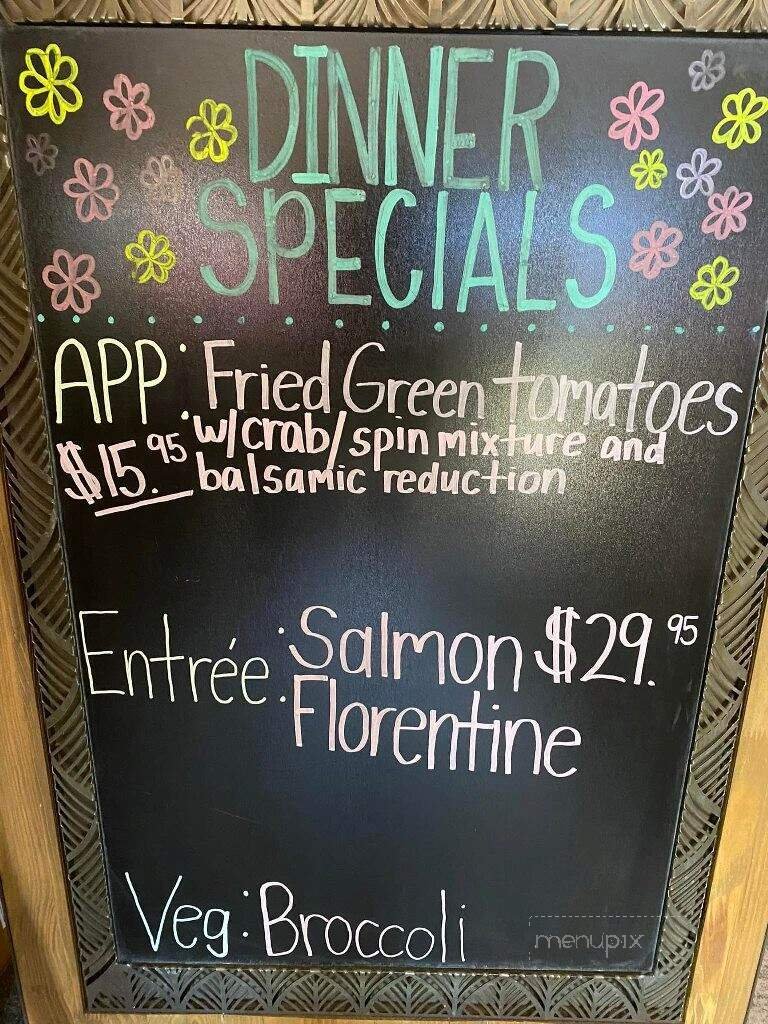 DINNER
SPECIALS
APP: Fried Green tomatoes
$15.95 w/crab/spin mixture and
balsamic reduction
Entrée: Salmon $29.95
Florentine
Veg: Broccoli
menupix